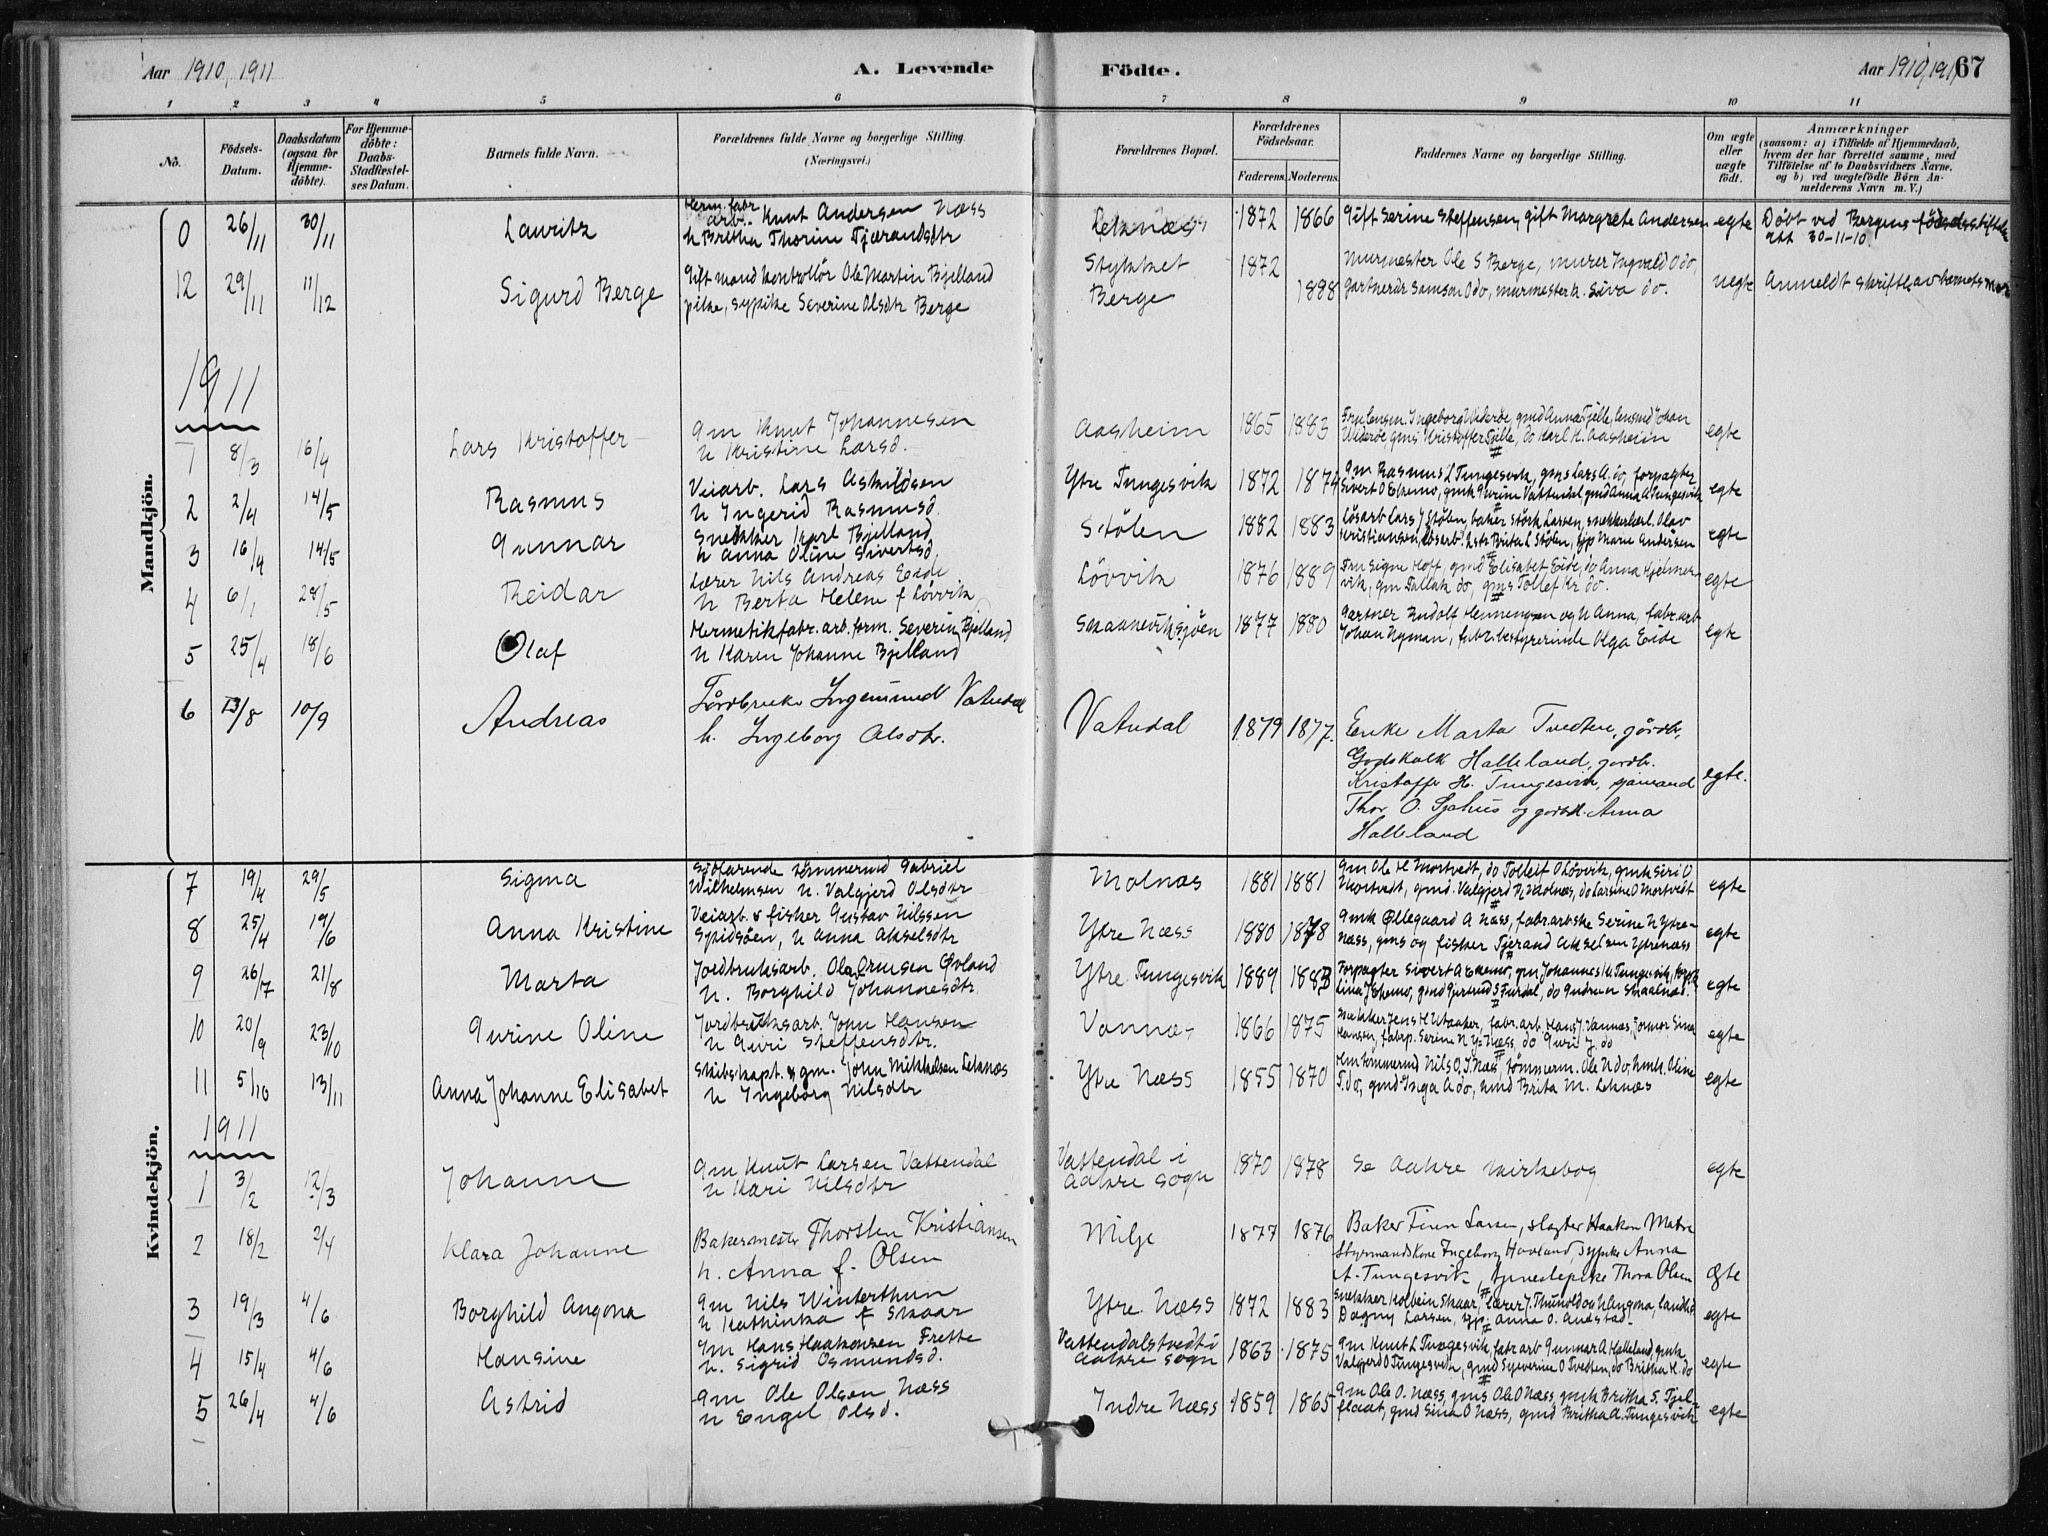 Aar 1910, 1911
A. Levende
Födte.
Aar 1910, 191
67
1 2 3 4 5 6 7 8 9 10 11
No.
Födsels-Datum.
Daabsdatum (ogsaa for Hjemme-döbte).
For Hjemme-döbte: Daabs-Stadfæstel-ses Datum.
Barnets fulde Navn.
Forældrenes fulde Navne og borgerlige Stilling. (Næringsvei.)
Forældrenes Bopæl.
Forældrenes Födselsaar.
Faderens. Moderens.
Faddernes Navne og borgerlige Stilling.
Om ægte eller uægte födt.
Anmærkninger
(saasom: a) i Tilfælde af Hjemmedaab,
hvem der har forrettet samme, med
Tilföielse af to Daabsvidners Navne.
og b) ved uægtefödte Börn An-
melderens Navn m. V.)
Mandkjön.
0 26/11 30/11 Lauritz Herm. fabr arb. Knut Andersen Næss
h Bretha Thorine Tjærandsdtr Leknæs 1872 1866 gift Serine Steffensen, gift Margrete Andersen egte Døbt ved Bergens fødselsstiftelse
30-11-10.
12 29/11 11/12 Sigurd Berge Gift mand kontrollör Ole Martin Bjelland
pike, sypike Severine Olsdtr Berge Stykket
Berge 1872 1898 Murmester Ole S Berge, murer Ingvald O do,
gartner Samson O do, murmesterk. Siva do. uegte Anmeldt skriftl. av barnets mor
1911
1 8/3 16/4 Lars Kristoffer gm Knut Johannesen
h Kristine Larsd. Aasheim 1865 1883 Ingeborg Underöe, gmd Anna Fjelle, lensmd Johan
Underöe gms Kristoffer Fjelle, do Karl K. Aasheim egte
2 2/4 14/5 Rasmus Veiarb. Lars Askildsen
h Ingerid Rasmusd. Ytre Tungesvik 1872 1874 gm Rasmus L Tungesvik, gms Lars A. do, forpagter
Sivert O Ekemo, gmk Gurine Vattendal gmd Anna A Tungesvik egte
3 16/4 14/5 Gunnar Snekker Karl Bjelland
h Anna Oline Sivertsd. Stölen 1882 1883 Lösarb Lars J Stölen, baker Störk Larsen, snekkerlærl. Olav
Kristiansen, Brita L Stölen, Marie Andersen egte
4 6/1 28/5 Reidar Lærer Nils Andreas Eide
h Berta Helene f Lövvik Lövvik 1876 1889 Fru Signe Hoff, gmd Elisabet Eide, do Anna Hjelmer-
vik, gm Tallak do, gms Tollef Kr do. egte
5 25/4 18/6 Olaf Hermetikfabr. arb. form. Severin Bjelland
h Karen Johanne Bjelland Skaaneviksjöen 1877 1880 Gartner Rudolf Henningsen og h Anna, fabr. arb
Johan Nyman, fabr. bestyrerinde Olga Eide egte
6 13/8 10/9 Andreas Gårdbruker Ingemund Vatndal
h. Ingeborg Olsdtr. Vatndal 1879 1877. Enke Marta Tvedten, gårdb.
Godskalk Halleland, gårdb.
Kristoffer H. Tungesvik, sjömand
Thor O. Sjohus og gårdbr. Anna
Halleland egte.
Kvindekjön.
7 19/4 29/5 Sigma Sjöfarende tömmermd Gabriel
Wilhelmsen h. Valgjerd Olsdtr Molnæs 1881 1881 gm Ole H Mortvedt, do Tolleif O Lövvik, gmk Siri O
Mortvedt, gmd. Valgjerd N Molnæs, do Larsine O Mortvedt egte
8 25/4 19/6 Anna Kristine Veiarb. & fisker Gustav Nilssen
Spidsöen, h Anna Akselsdtr Ytre Næss 1880 1878 gmk Øllegaard A Næss, fabr. arbske Serine N Ytre-
næss, gms og fisker Tjerand Akselsen Ytrenæss egte
9 26/7 21/8 Marta Jordbruksarb. Ola Ormsen Øvland
h. Borghild Johannesdtr. Ytre Tungesvik 1889 1883 Forpagter Sivert A Ekemo, gm Johannes K Tungesvik, forpk
Lina J Ekemo, gmd Gjertrud S Furdal, do Gudrun Skaalnæs. egte
10 20/9 23/10 Gurine Oline Jordbruksarb. John Hansen
h Guri Steffensdtr. Vannæs 1866 1875 Snekker Jens H Utaaker, fabr. arb. Hans J. Vannæs, Sina
Hansen, fabrp. Serine N Y. Næss, do Guri J. do egte
11 5/10 13/11 Anna Johanne Elisabet Skibskapt. & gm. John Mikkelsen Leknæs
h Ingeborg Nilsdtr Ytre Næss 1855 1870 Hm tömmermd Nils O. I. Næss, tömmerm. Ole N do, hmk. Oline
T. do, gmd Inga A do, hmd Brita M. Leknæs egte
1911
1 3/2 12/3 Johanne gm Knut Larsen Vattendal
h Kari Nilsdtr Vattendal i
Aakre sogn 1870 1878 Se Aakre kirkebog egte
2 18/2 2/4 Klara Johanne Bakermester Thorsten Kristiansen
h. Anna f. Olsen Milje 1877 1876 Baker Finn Larsen, slagter Haakon Matre
Styrmandskone Ingeborg Havland, sypike Anna
A. Tungesvik, tjenestepike Thora Olsen egte
3 19/3 4/6 Borghild Angona gm Nils Winterthun
h Kathinka f Skaar Ytre Næss 1872 1883 Snekker Kolbein Skaar, lærer J. Thunold og h Angona,
Dagny Larsen, Anna O. Andstad. egte
4 15/4 4/6 Hansine gm Hans Haakonsen Frette
h. Sigrid Osmundsd. Vattendalstvedt i
Aakre sogn 1863 1875 gm Knut L Tungesvik, fabr arb Gunnar A Halleland, gmk
Valgjerd O Tungesvik, gmd Syverine O Tvedten, do Britha H. do egte
5 26/4 4/6 Astrid gm Ole Olsen Næss
h Engel Olsd. Indre Næss 1859 1865 gm Ole O. Næss, gms Ole O Næss, gmk Britha S. Fjel-
flaat, gmd Sina O Næss, gmd Britha A. Tungesvik egte